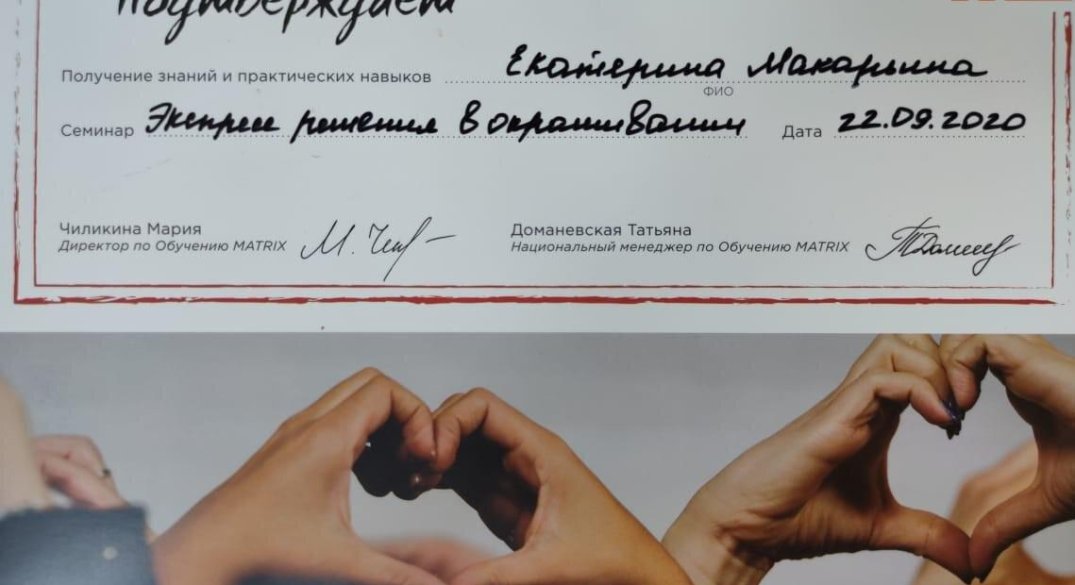 подтверждает
Получение знаний и практических навыков Екатерина Макарьина
ФИО
Семинар Экспресс решения в окрашивании Дата 22.09.2020
Чиликина Мария
Директор по Обучению MATRIX
Доманевская Татьяна
Национальный менеджер по Обучению MATRIX